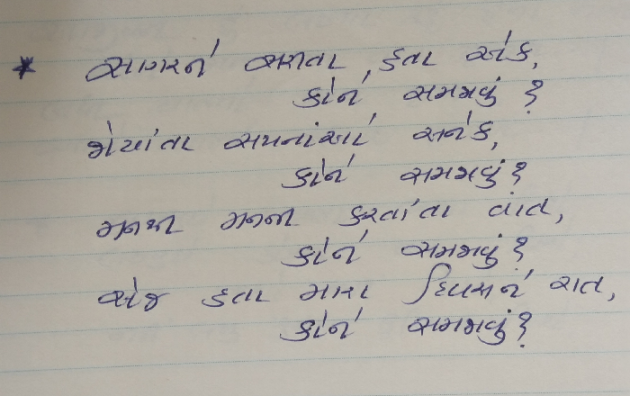 * સાગરને સરીતા, હતા એક,
કોને સમજાવું ?
જોયાંતા સપનાંઓ અનેક,
કોને સમજાવું ?
મનથી મનની કરતાંતા વાત,
કોને સમજાવું ?
એજ હતા મારા દિવસને રાત,
કોને સમજાવું ?